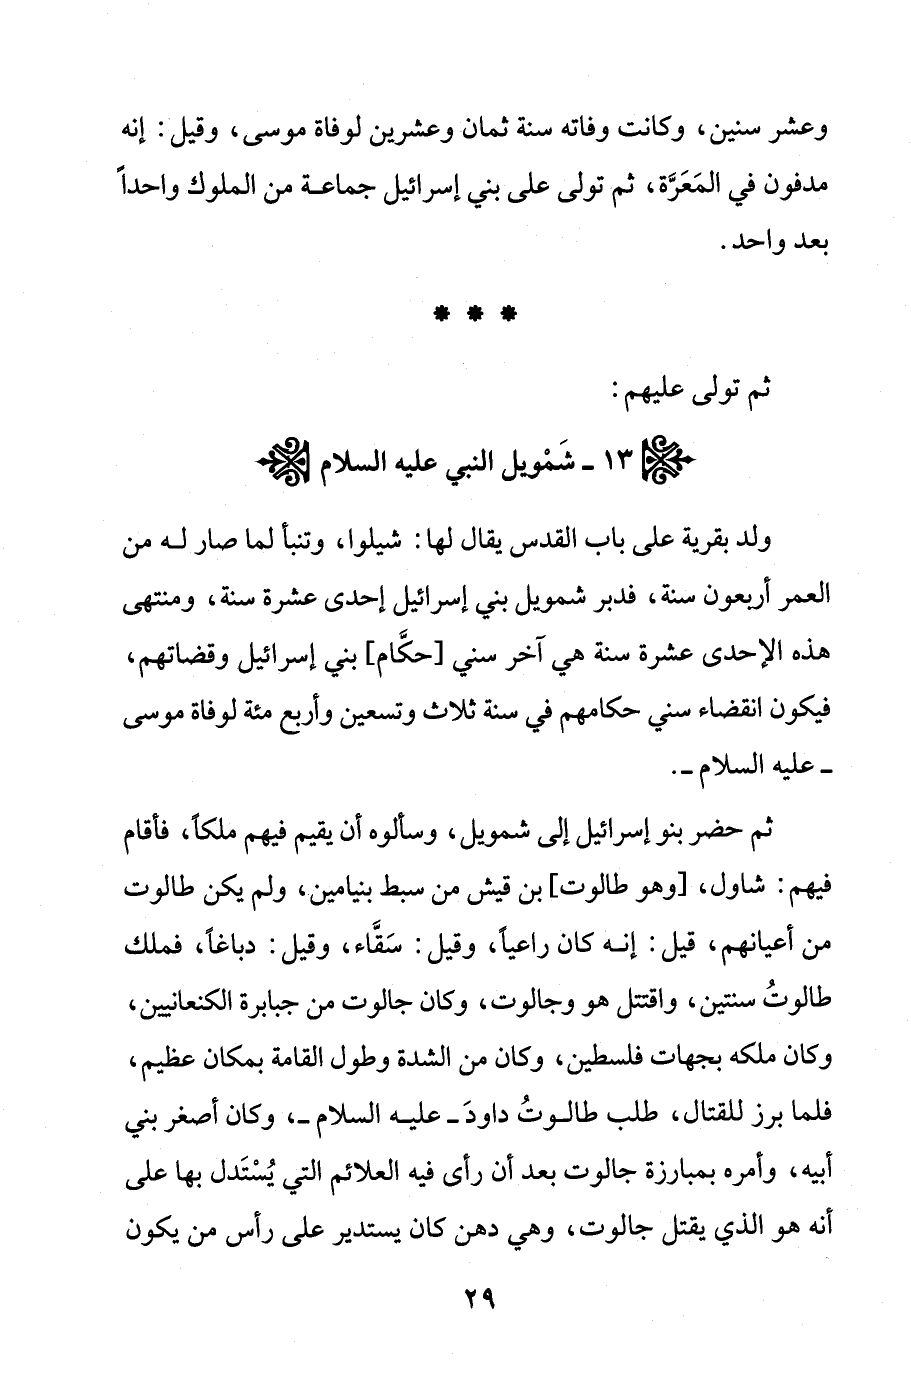 وعشر سنين، وكانت وفاته سنة ثمان وعشرين لوفاة موسى، وقيل: إنه
مدفون في المَعَرَّة، ثم تولى على بني إسرائيل جماعة من الملوك واحداً
بعد واحد.
* * *
ثم تولى عليهم:
١٣ ـ شَمْويل النبي عليه السلام
ولد بقرية على باب القدس يقال لها: شيلوا، وتنبأ لما صار له من
العمر أربعون سنة، فدبر شمويل بني إسرائيل إحدى عشرة سنة، ومنتهى
هذه الإحدى عشرة سنة هي آخر سني [حكَّام] بني إسرائيل وقضاتهم،
فيكون انقضاء سني حكامهم في سنة ثلاث وتسعين وأربع مئة لوفاة موسى
ـ عليه السلام ـ.
ثم حضر بنو إسرائيل إلى شمويل، وسألوه أن يقيم فيهم ملكاً، فأقام
فيهم: شاول، [وهو طالوت] بن قيش من سبط بنيامين، ولم يكن طالوت
من أعيانهم، قيل: إنه كان راعياً، وقيل: سَقَّاء، وقيل: دباغاً، فملك
طالوتُ سنتين، واقتتل هو وجالوت، وكان جالوت من جبابرة الكنعانيين،
وكان ملكه بجهات فلسطين، وكان من الشدة وطول القامة بمكان عظيم،
فلما برز للقتال، طلب طالوتُ داودَ ـ عليه السلام ـ، وكان أصغر بني
أبيه، وأمره بمبارزة جالوت بعد أن رأى فيه العلائم التي يُسْتَدل بها على
أنه هو الذي يقتل جالوت، وهي دهن كان يستدير على رأس من يكون
٢٩